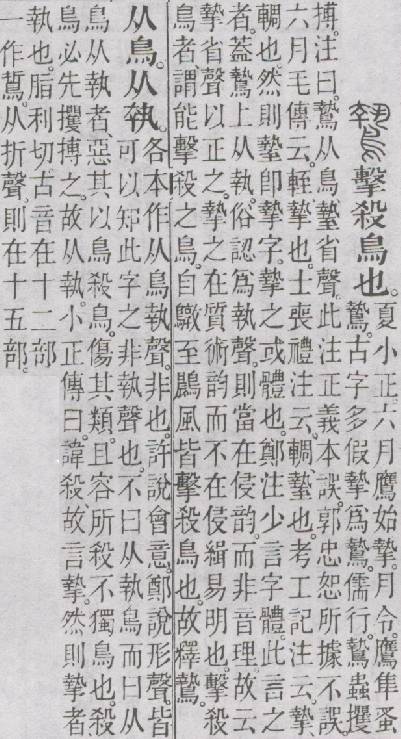 擊殺鳥也。
夏小正。六月鷹始摯。月令。鷹隼蚤
鷙。古字多假摯爲鷙。儒行。鷙蟲攫
搏。注曰。鷙从鳥。蟄省聲。此注正義本誤。郭忠恕所據不誤。
六月毛傳云。輊。摯也。士喪禮注云。輖。蟄也。考工記注云。摯
輖也。然則蟄卽摯字。摯之或體也。鄭注少言字體。此言之
者。蓋鷙上从執。俗認爲執聲。則當在侵韵。而非音理。故云
摯省聲以正之。摯之在質術韵而不在侵緝易明也。擊殺
鳥者。謂能擊殺之鳥。自鷻至鷐風皆擊殺鳥也。故釋鷙。
从鳥。从執。
各本作从鳥執聲。非也。許說會意。鄭說形聲。皆
可以知此字之非執聲也。不曰从執鳥而曰从
鳥从執者。惡其以鳥殺鳥。傷其類。且容所殺不獨鳥也。殺
鳥必先攫搏之。故从執。小正傳曰。諱殺。故言摯。然則摯者
執也。脂利切。古音在十二部。
一作 从折聲。則在十五部。